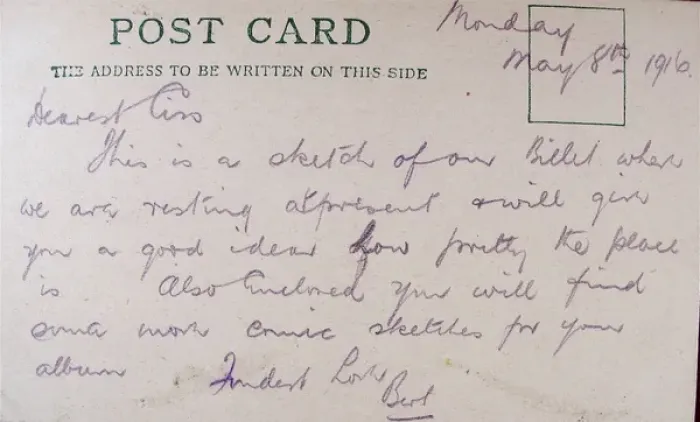 POST CARD
THE ADDRESS TO BE WRITTEN ON THIS SIDE
Monday
May 8th 1916.
Dearest Ciss
This is a sketch of our Billet where
we are resting at present & will give
you a good idear how pretty the place
is Also Enclosed you will find
some more comic sketches for your
album Fondest Love
Bert